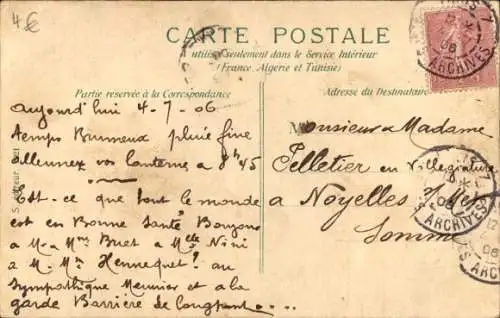 4€
CARTE POSTALE
utilisée seulement dans le Service Intérieur
(France, Algérie et Tunisie)
Partie réservée à la Correspondance
Adresse du Destinataire
aujourd'hui 4-7-06
temps Brumeux pluie fine
allumez vos lanterne a 8h45
Est-ce que tout le monde
est en Bonne Santé Bonjour
a M. a Mme Buet a Melle Nini
a M. Mme Hennequet? au
Sympathique Meunier et a la
garde Barrière de
Monsieur a Madame
Pelletier en Villegiature
a Noyelles s/Mer
Somme
ARCHIVES
06
ARCHIVES
06
ARCHIVES
06